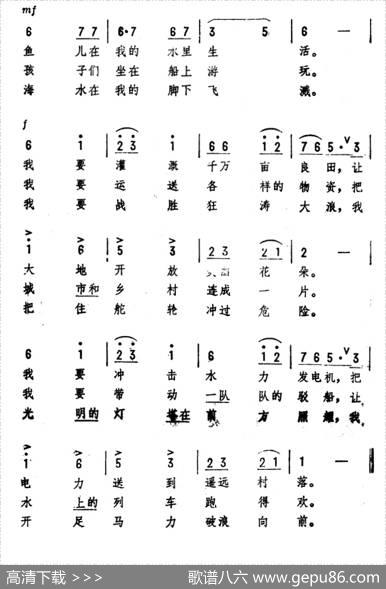 mf
6 7 7 6·7 6 7 3 5 6 —
鱼 儿在 我的 水里 生 活。
孩 子们 坐在 船上 游 玩。
海 水在 我的 脚下 飞 溅。
f
6 i 2 3 i 6 6 i 2 7 6 5· V 3
我 要 灌 溉 千万 亩 良 田，让
我 要 运 送 各 样的 物 资，把
我 要 战 胜 狂 涛 大 浪，我
i 6 5 3 2 3 2 1 2 —
大 地 开 放 花 朵。
城 市和 乡 村 连成 一 片。
把 住 舵 轮 冲过 危 险。
6 i 2 3 i 6 i 2 7 6 5· V 3
我 要 冲 击 水 力 发电机，把
我 要 带 动 一队 队的 驳 船，让
光 明的 灯 塔在 前 方 照 耀，我
i 6 5 3 2 3 2 1 1 —
电 力 送 到 遥远 村 落。
水 上的 列 车 跑 得 欢。
开 足 马 力 破浪 向 前。
高清下载 >>> 歌谱八六 www.gepu86.com